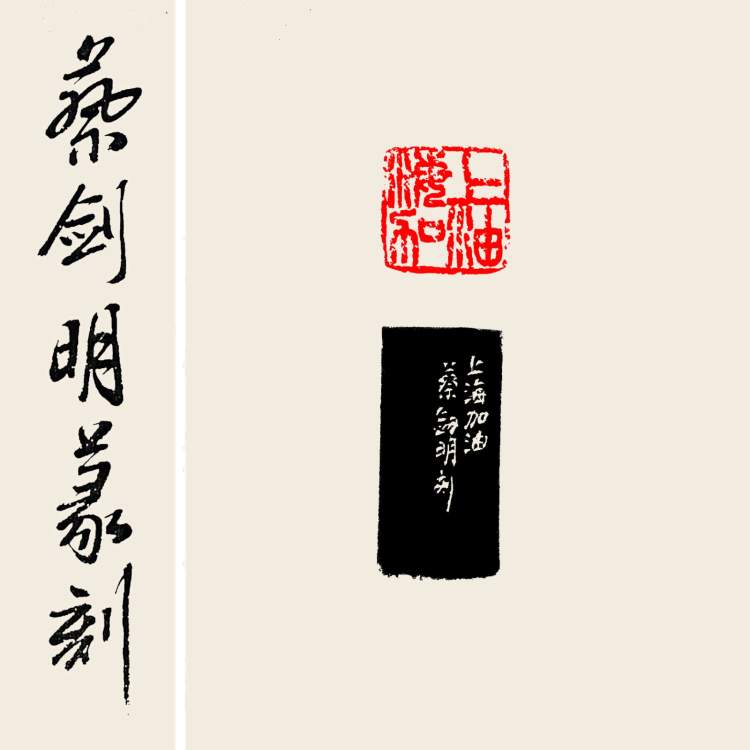 蔡剑明篆刻
上海加油
上海加油
蔡剑明刻